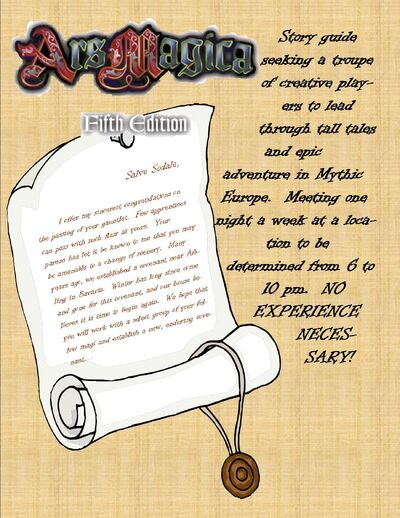 Ars Magica
Fifth Edition
Story guide
seeking a troupe
of creative play-
ers to lead
through tall tales
and epic
adventure in Mythic
Europe. Meeting one
night a week at a loca-
tion to be
determined from 6 to
10 pm. NO
EXPERIENCE
NECES-
SARY!
Salve Sodale,
I offer my sincerest congratulations on
the passing of your gauntlet. Few apprentices
can pass with such flair as yours. Your
parens has let it be known to me that you may
be amenable to a change of scenery. Many
years ago, we established a covenant near
ling in Bavaria. Winter has long since come
and gone for this covenant, and our house be-
lieves it is time to begin again. We hope that
you will work with a select group of your fel-
low magi and establish a new, enduring cove-
nant...